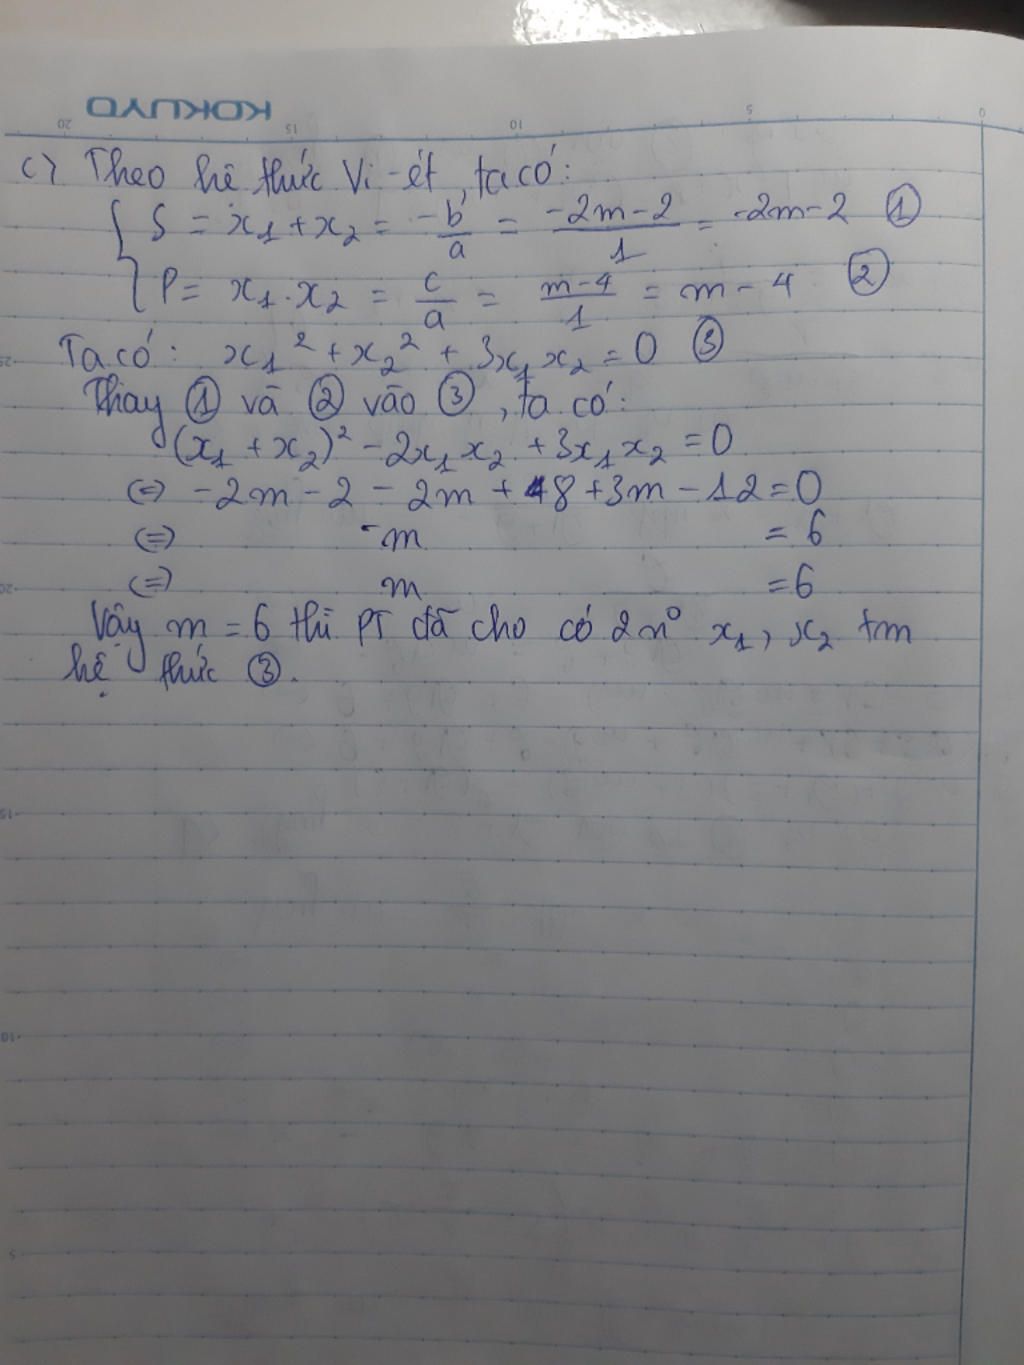 KOKUYO
20 15 10 5 0
c) Theo hê thức Vi-ét, ta có:
S = x₁ + x₂ = -b/a = (-2m-2)/1 = -2m-2 ①
P = x₁ . x₂ = c/a = (m-4)/1 = m - 4 ②
25
Ta có: x₁² + x₂² + 3x₁x₂ = 0 ③
Thay ① và ② vào ③, ta có:
(x₁ + x₂)² - 2x₁x₂ + 3x₁x₂ = 0
(=) -2m - 2 - 2m + 8 + 3m - 12 = 0
(=) -m = 6
20
(=) m = 6
Vậy m = 6 thì PT đã cho có 2n⁰ x₁, x₂ tm
hệ thức ③.
15
10
5